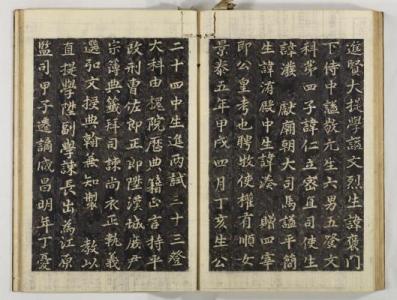 進賢大提學謚文烈生諱褒門
下侍中謚敬元生六男五登文
科第四子諱仁立密直司使生
諱濮 獻廟朝大司馬謚平簡
生諱洧殿中生諱湊 贈四宰
即公皇考也聘牧使權有順女
景泰五年甲戌四月丁亥生公
二十四中生進兩試三十三登
大科由槐院歷典籍正言持平
改刑曹佐郎正郎陞漢城庶尹
宗簿典籤拜司諫尚衣正執義
選弘文授典翰兼知製 教以
直提學陞副學諫長出爲江原
監司甲子遘謫咸昌明年丁憂